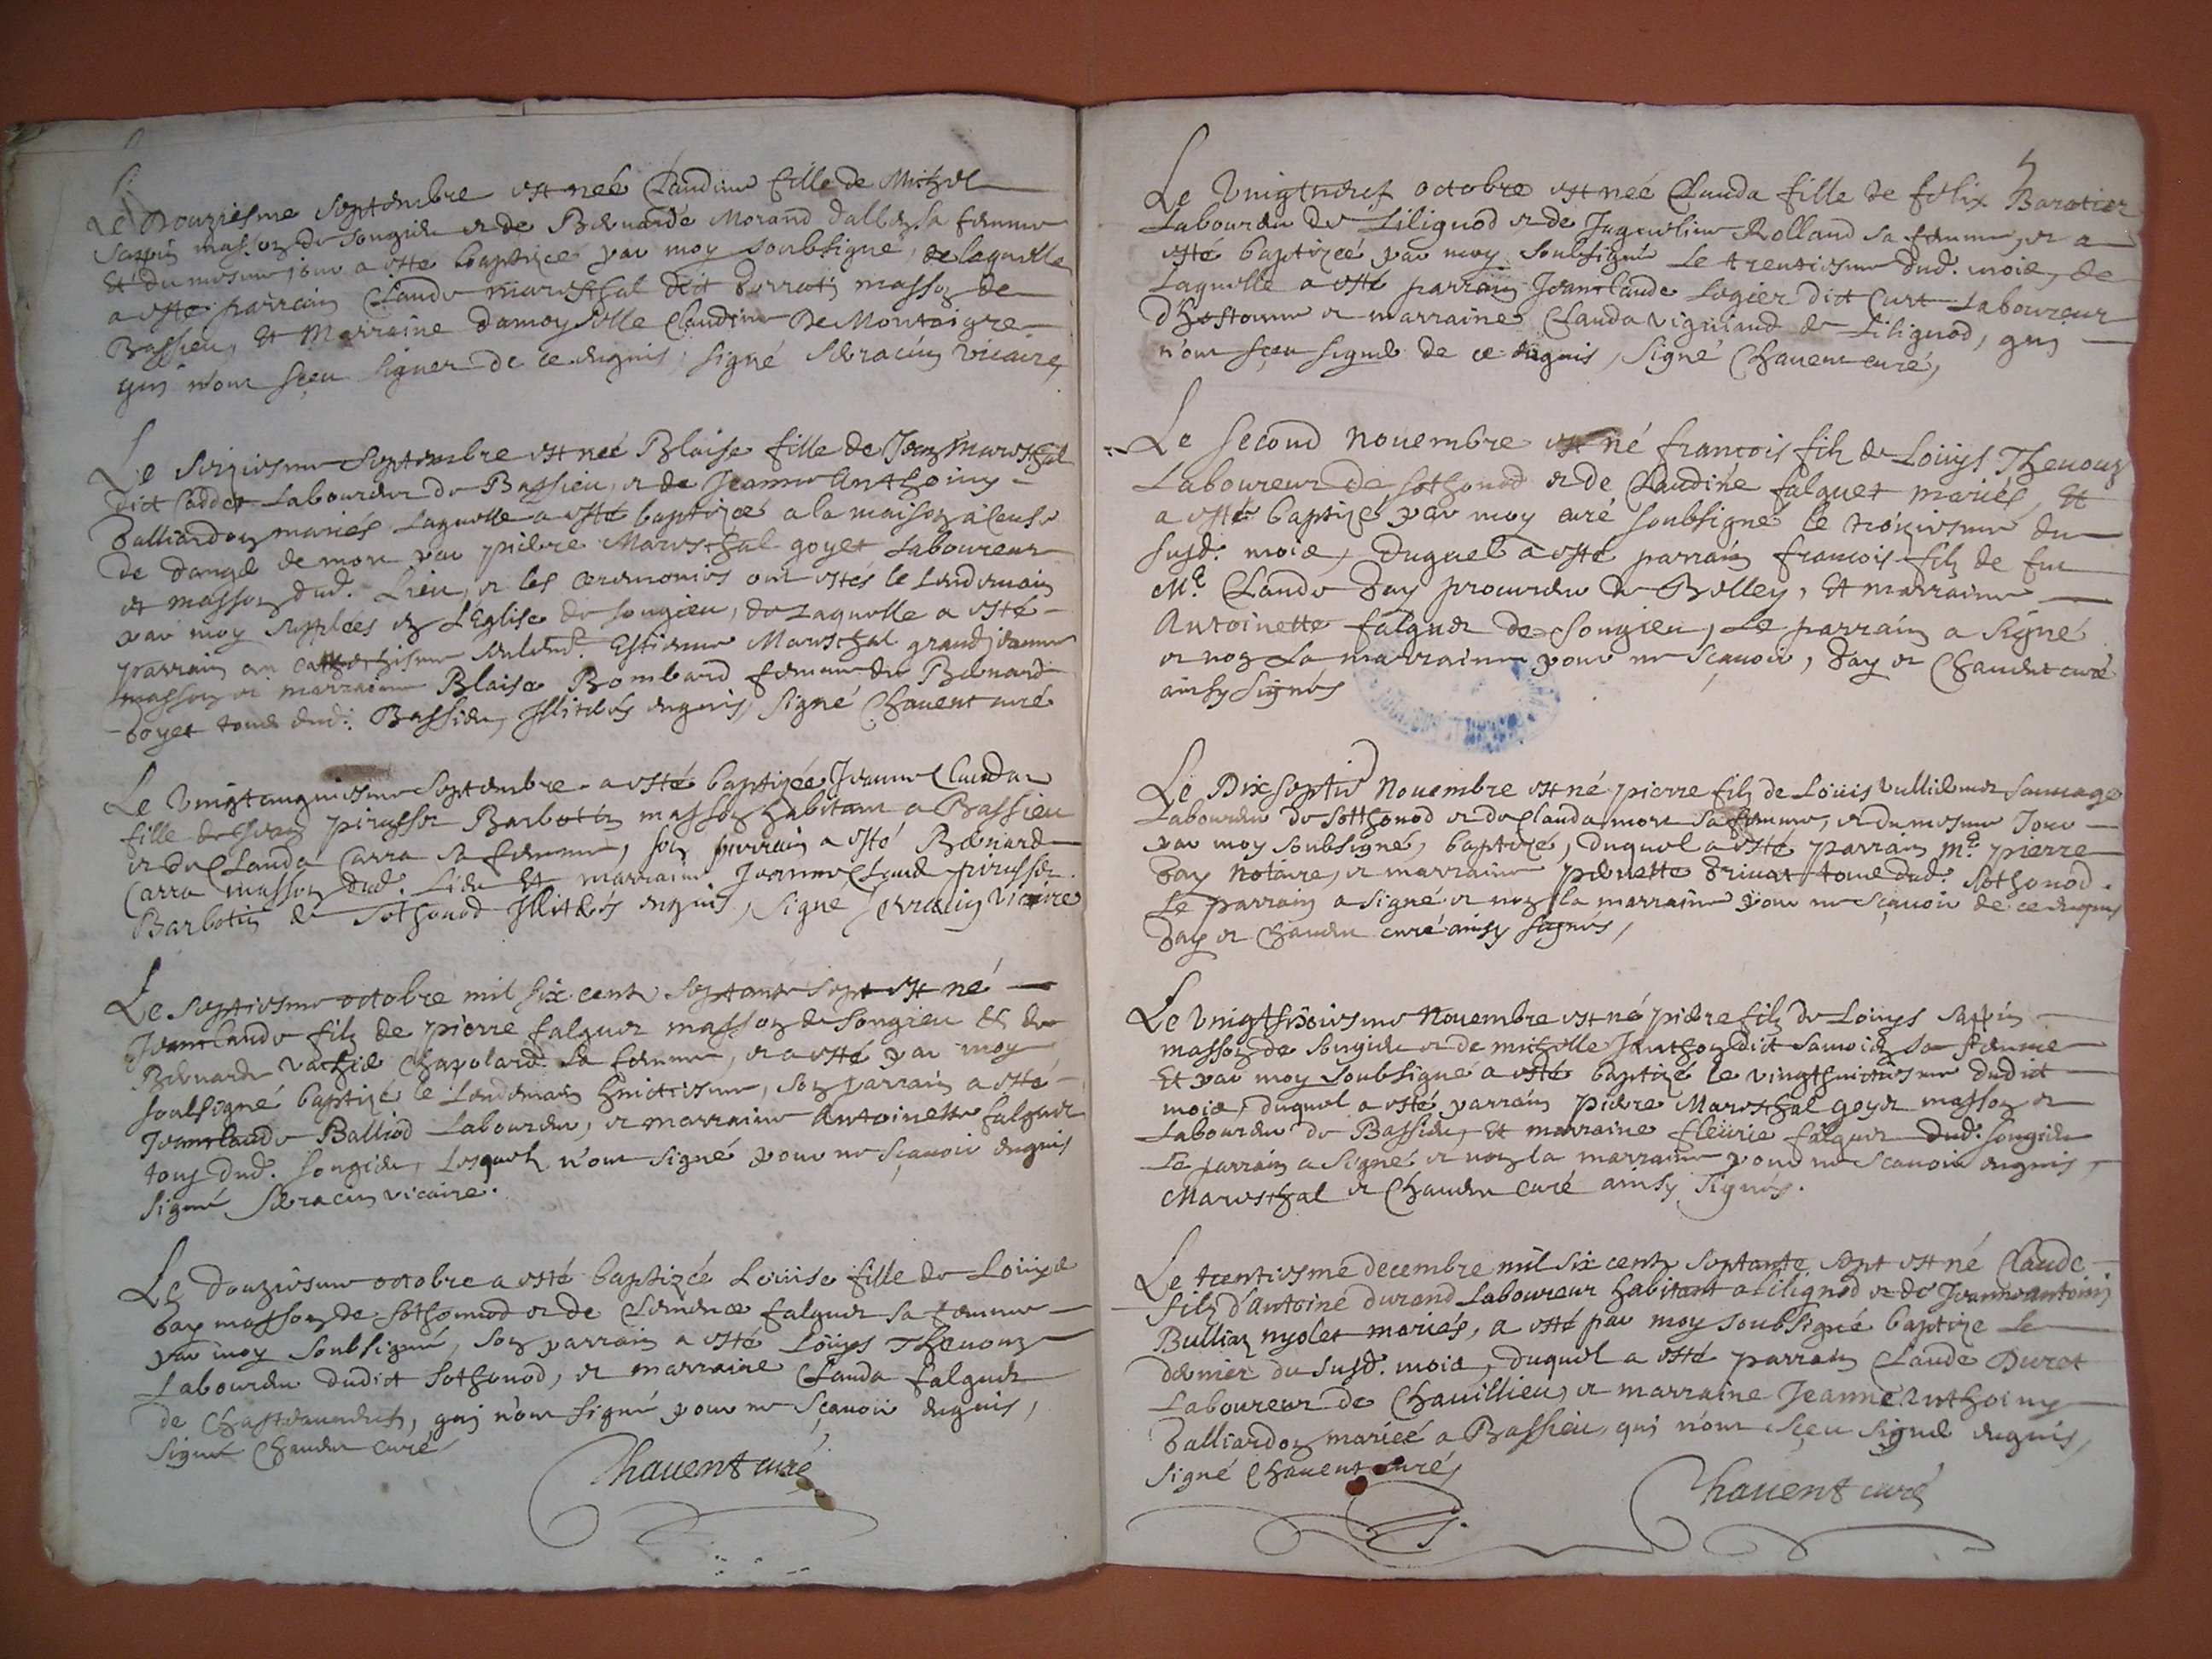 Le douziesme septembre est neé Claudine fille de Michel
Sappin masson de Songieu et de Bernarde Morand dallon sa femme
Et du mesme jour a esté baptizeé par moy soubsigné, de laquelle
a esté parrain Claude mareschal dict masson de
Bassieu, Et Marraine damoyselle Claudine De Montaigre
qui n'ont sçeu signer de ce enquis, signé Serracin vicaire,
Le seiziesme septembre est neé Blaise fille de Jean Mareschal
dict Caddet Laboureur de Bassieu, et de Jeanne Anthoiny
Balliardon mariés laquelle a esté baptizeé a la maison a cause
de danger de mort par pierre Mareschal goyet Laboureur
et masson dud. Lieu, et les ceremonies ont estés le lendemain
par moy suppleés en L'Eglise de Songieu, de Laquelle a esté
parrain au cathechisme seulemt. Estienne Mareschal grand jeanne
masson et marraine Blaise Bombard femme de Bernard
boyet tous dud: Bassieu, Illiterés enquis, signé Chauent curé
Le vingtcinquiesme Septembre a esté baptizeé Jeanne Clauda
fille de Jean pirusset Barbotin masson habitant a Bassieu
et de Clauda Carra sa femme, son parrain a esté Bernard
Carra masson dud. Lieu Et marraine Jeanne Claude pirusset
Barbotin de Sothonod Illiterés enquis, signé Serracin Vicaire
Le septiesme octobre mil six cents septante sept est né
Jeanclaude filz de pierre falguet masson de Songieu Et de
Bernarde Vachie Chapolard sa femme, et a esté par moy
soubsigné baptizé le Lendemain huictiesme, son parrain a esté
Jeanclaude Balliod Laboureur, et marraine Antoinette falguet
tous dud. Songieu, Lesquels n'ont signé pour ne Sçauoir enquis
signé Serracin vicaire.
Le douziesme octobre a esté baptizeé Louise fille de Louys
bay masson de Sothonnod et de Clemence falguet sa femme
par moy soubsigné, son parrain a esté Louys Theuenon
Laboureur dudict Sothonod, et marraine Clauda falguet
de, qui n'ont signé pour ne Sçauoir enquis,
signé Chauent curé
Chauent curé
5
Le Vingtneuf octobre est neé Clauda fille de felix Baratier
Laboureur de Lilignod et de Jaqueline Rolland sa femme, et a
esté baptizeé par moy soubsigné Le trentiesme dud. mois, de
Laquelle a esté parrain Jeanclaude Logier dict Curt Laboureur
d'hostonne et marraine Clauda vignand de Lilignod, qui
n'ont sçeu signer de ce enquis, signé Chauent curé,
Le second nouembre est né francois filz de Louys Theuenon
Laboureur de Sothonod et de Claudine falguet mariés, Et
a esté baptizé par moy curé soubsigné le troisiesme du
susd. mois, duquel a esté parrain francois filz de feu
Me. Claude Day procureur de Belley, Et marraine
Antoinette falguet de Songieu, Le parrain a signé
et non La marraine pour ne sçauoir, Day et Chauent curé
ainsy signés
Le Dix septie nouembre est né pierre filz de Louis vulliemet sauuage
Laboureur de Sothonod et de Clauda mort sa femme, et du mesme Jour
par moy soubsigné, baptizé, duquel a esté parrain me. pierre
Day Notaire, et marraine pernette Briuat tous dud. Sothonod.
Le parrain a signé et non la marraine pour ne Sçauoir de ce enquis
Day et Chauent curé ainsy signés,
Le Vingtsixiesme Nouembre est né pierre filz de Louys sappin
masson de Songieu et de michelle Janthon dict samoien sa femme
Et par moy soubsigné a esté baptizé le vingthuictiesme dudict
mois, duquel a esté parrain pierre Mareschal Goyet masson et
Laboureur de Bassieu, Et marraine fleurie falguet dud. Songieu
Le parrain a signé et non la marraine pour ne Scauoir enquis,
Mareschal et Chauent curé ainsy signés.
Le trentiesme decembre mil six cents septante sept est né Claude
filz d'Antoine durand Laboureur habitant a Lilignod et de Jeanne antoiny
Bullian nyolet mariés, a esté par moy soubsigné baptize Le
dernier du susd. mois, duquel a esté parrain Claude Duret
Laboureur de Chauillieu, et marraine Jeanne Anthoiny
Balliardon marieé a Bassieu, qui n'ont sçeu signer enquis,
signé Chauent curé,
Chauent curé